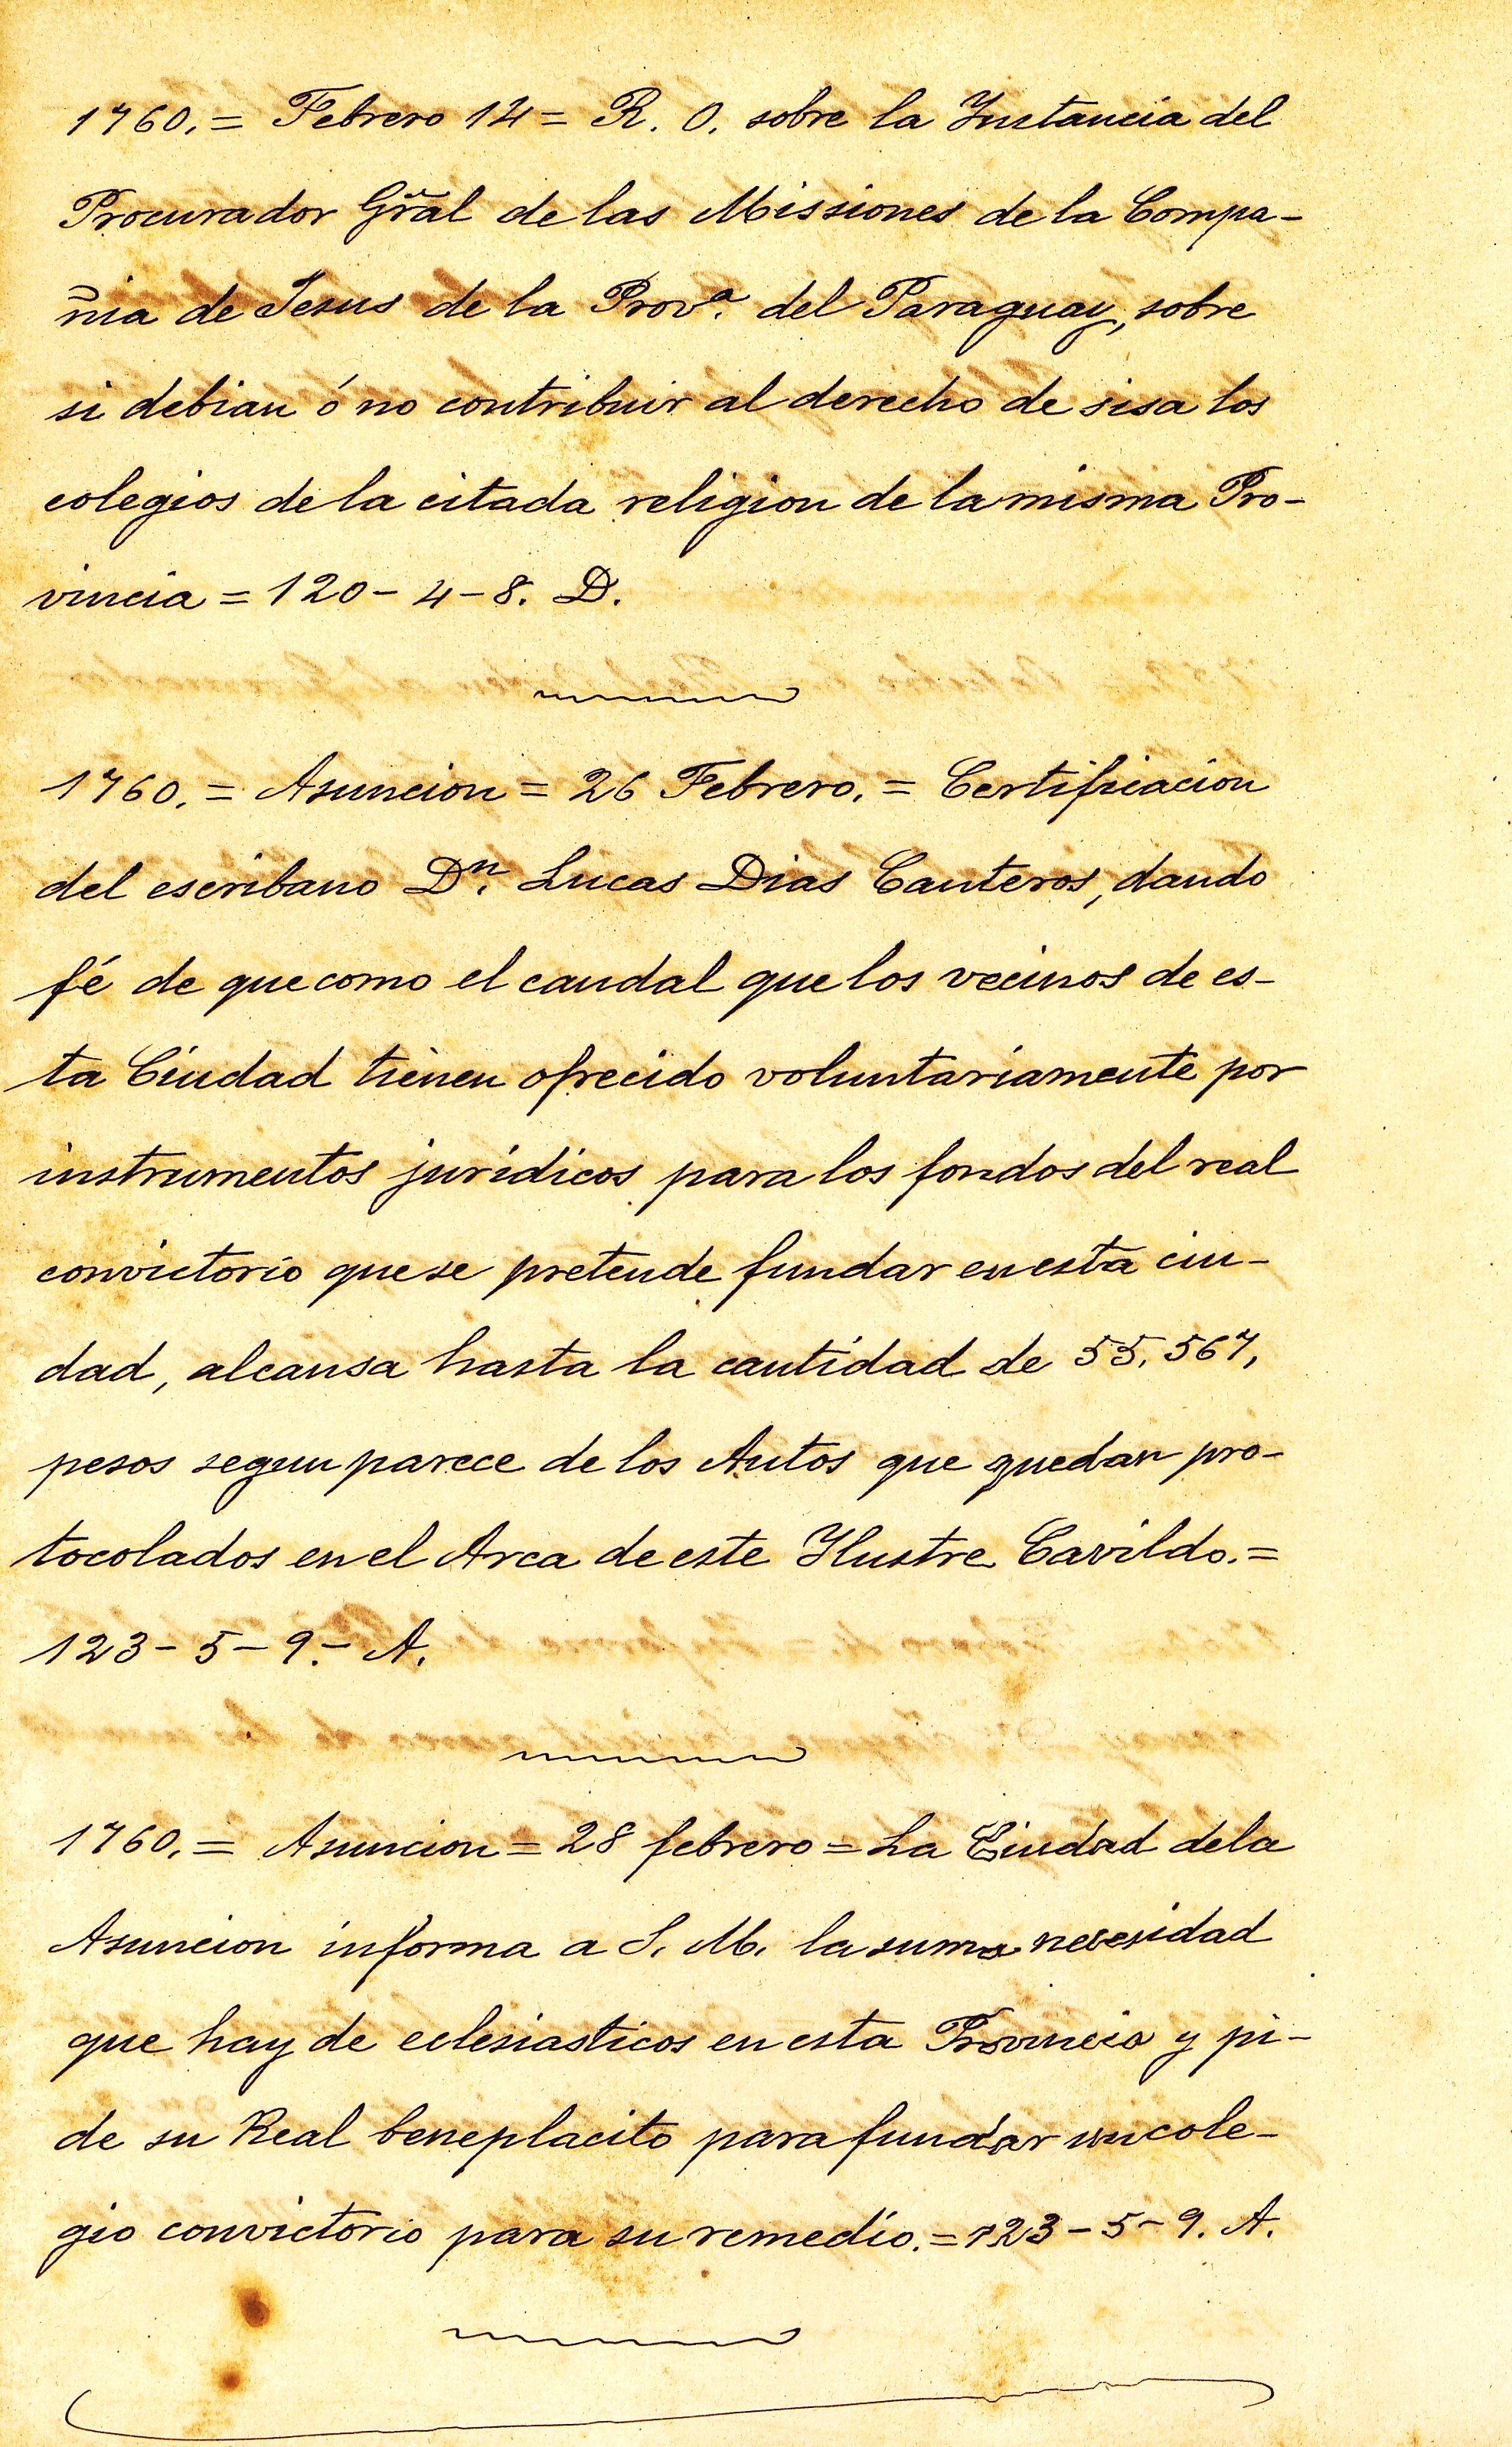 1760. = Febrero 14 = R. O. sobre la Instancia del
Procurador Gr̃al de las Missiones de la Compa-
ñia de Jesus de la Prov.ª del Paraguay, sobre
si debian ó no contribuir al derecho de sisa los
colegios de la citada religion de la misma Pro-
vincia = 120 - 4 - 8. D.
1760. = Asuncion = 26 Febrero. = Certificacion
del escribano D.n Lucas Dias Canteros, dando
fé de que como el caudal que los vecinos de es-
ta Ciudad tienen ofrecido voluntariamente por
instrumentos juridicos para los fondos del real
convictorio que se pretende fundar en esta ciu-
dad, alcansa hasta la cantidad de 55.567,
pesos segun parece de los Autos que quedan pro-
tocolados en el Arca de este Ylustre Cavildo. =
123 - 5 - 9. - A.
1760. = Asuncion = 28 febrero = La Ciudad de la
Asuncion informa a S. M. la suma necesidad
que hay de eclesiasticos en esta Provincia y pi-
de su Real beneplacito para fundar un cole-
gio convictorio para su remedio. = 123 - 5 - 9. A.